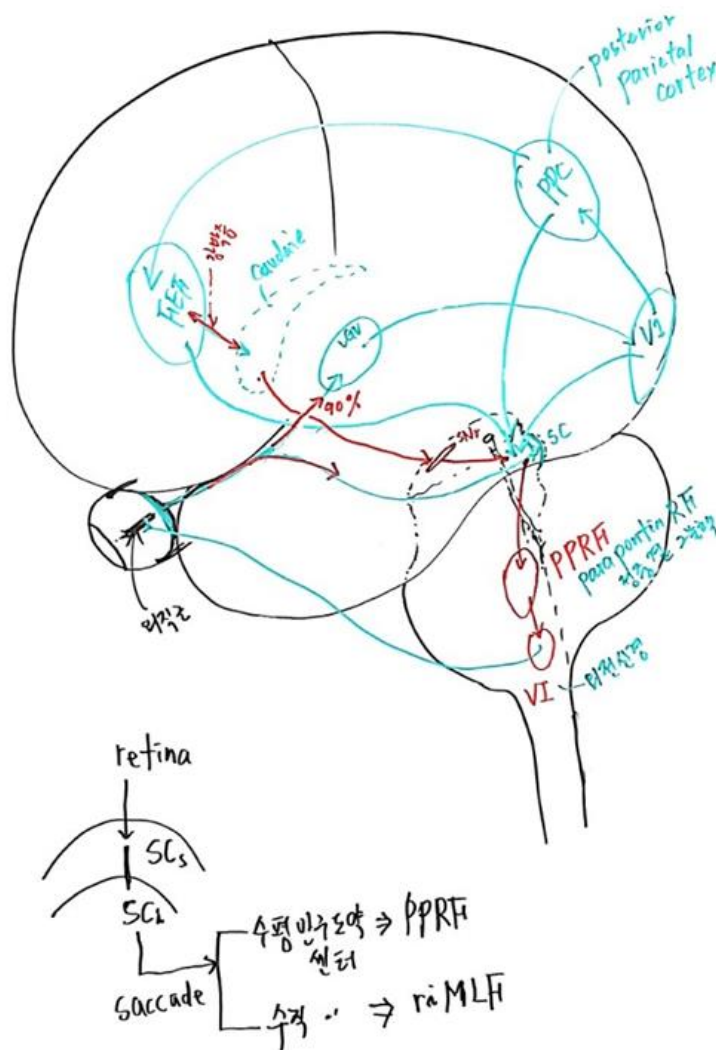 posterior
parietal
cortex
PPC
FEF
caudate
LGN
V1
90%
SNr
SC
PPRF
parapontin RF
VI
외전신경
외직근
retina
SCs
SCi
saccade
수평안구도약 ⇒ PPRF
센터
수직 〃 ⇒ riMLF